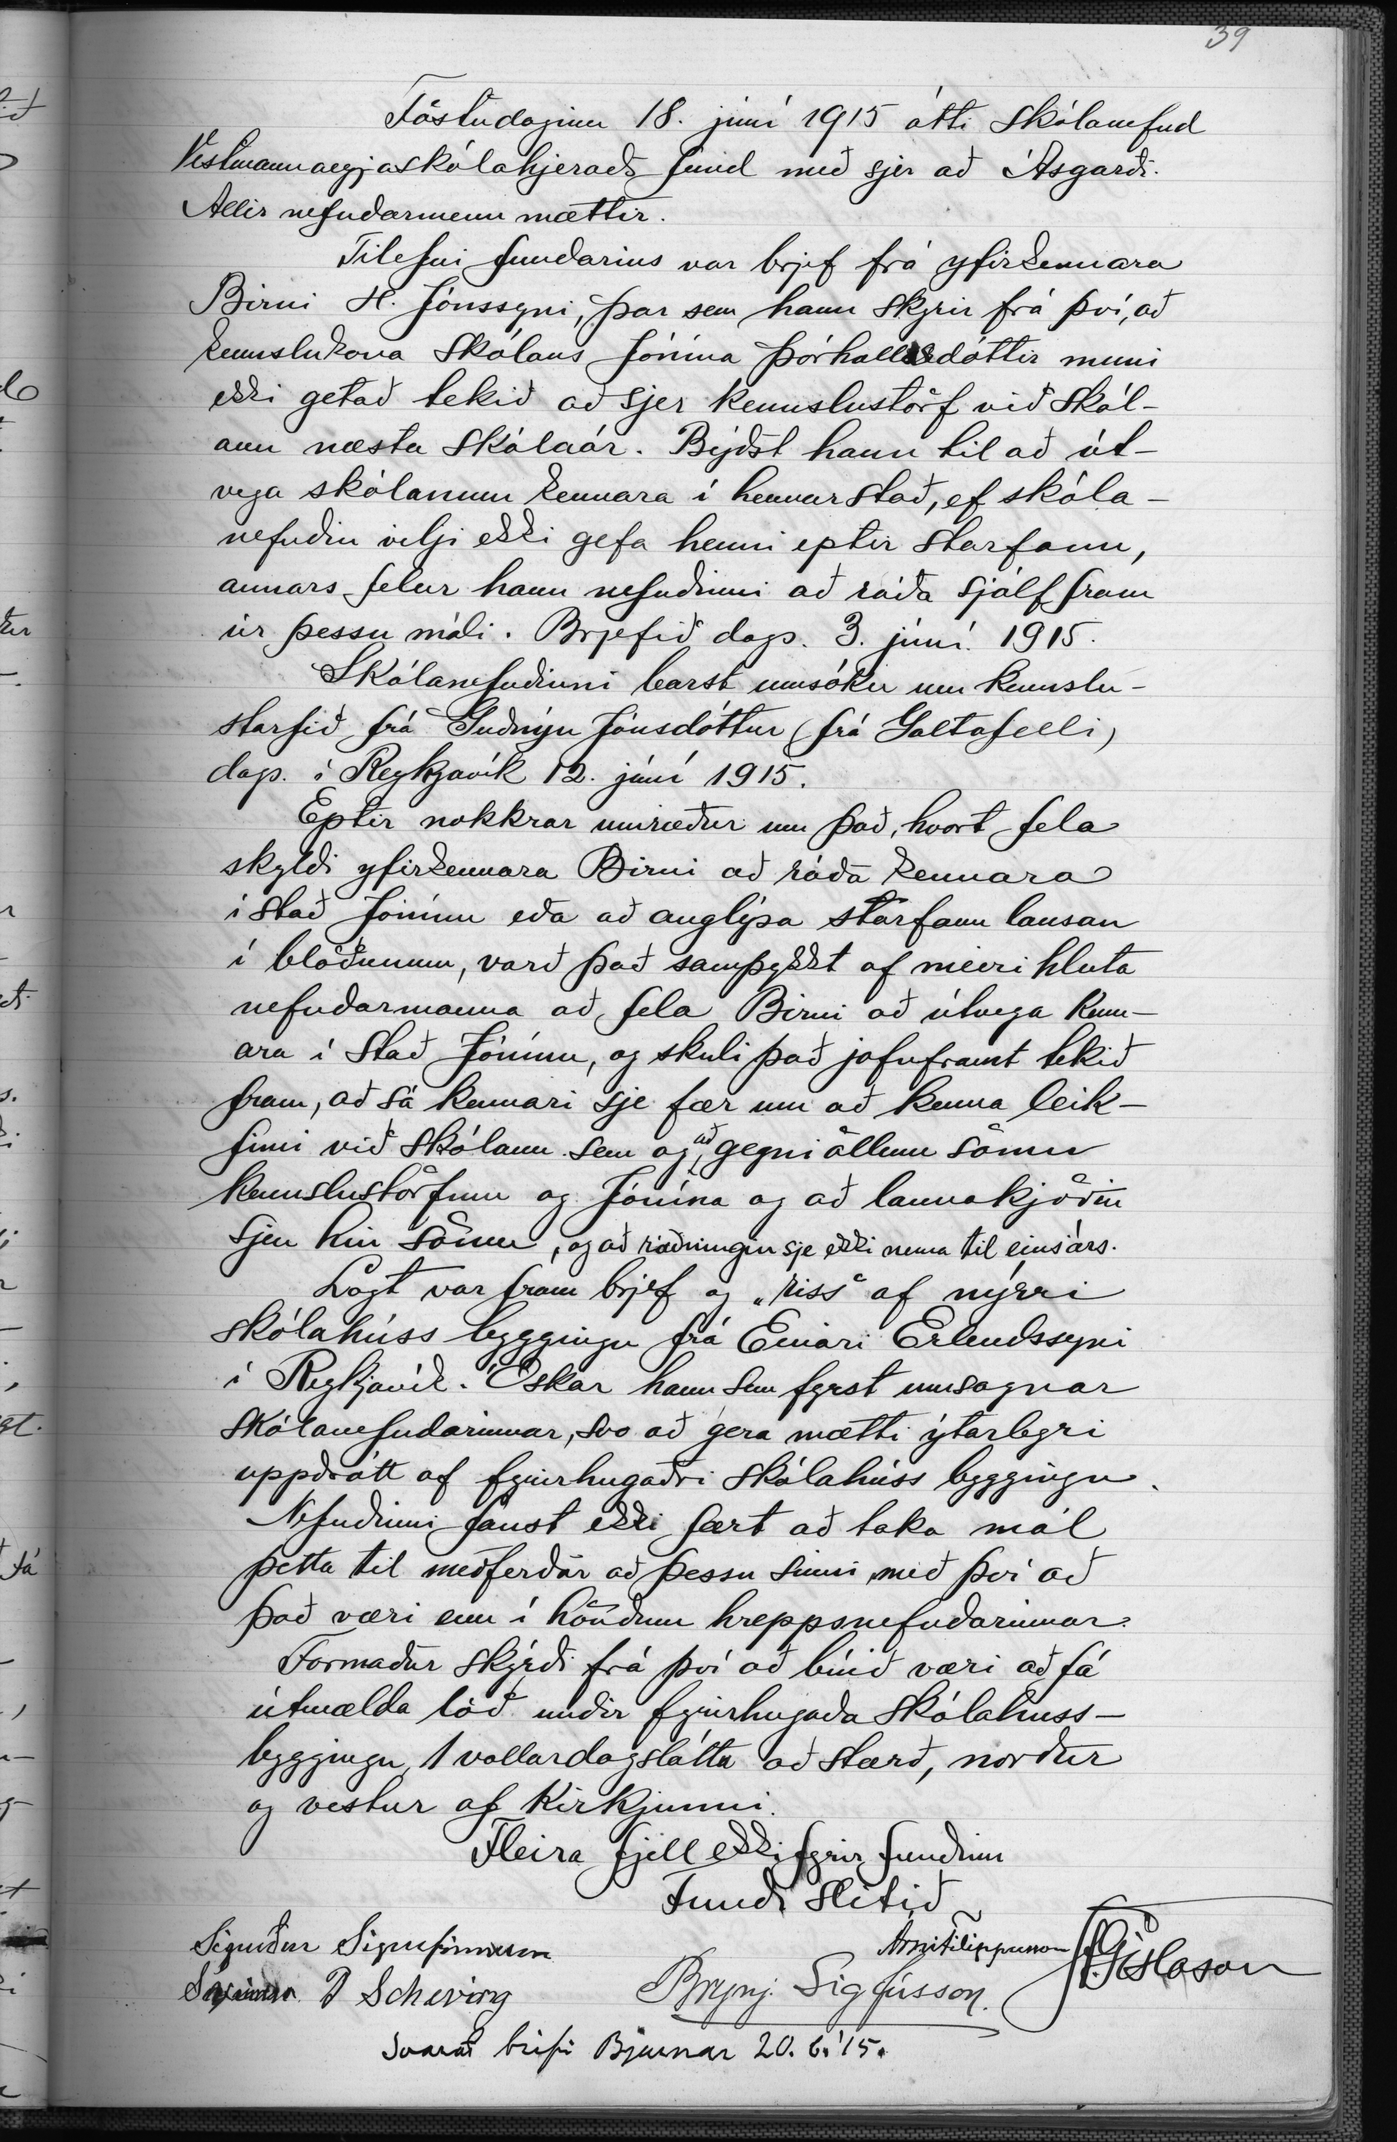 39
Föstudaginn 18. júní 1915 átti skólanefnd
Vestmannaeyjaskólahjeraðs fund með sjer að Ásgarði.
Allir nefndarmenn mættir.
Tilefni fundarins var brjef frá yfirkennara
Birni H. Jónssyni, þar sem hann skýrir frá því, að
kennslukona skólans Jónína Þórhallsdóttir muni
ekki getað tekið að sjer kennslustörf við skól-
ann næsta skólaár. Býðst hann til að út-
vega skólanum kennara í hennar stað, ef skóla-
nefndin vilji ekki gefa henni eptir starfann,
annars felur hann nefndinni að ráða sjálf fram
úr þessu máli. Brjefið dags. 3. júní 1915.
Skólanefndinni barst umsókn um kennslu-
starfið frá Guðnýu Jónsdóttur (frá Galtafelli)
dags. í Reykjavík 12. júní 1915.
Eptir nokkrar umræður um það, hvort fela
skyldi yfirkennara Birni að ráða kennara
í stað Jónínu eða að auglýsa starfann lausan
í blöðunum, varð það samþykkt af meiri hluta
nefndarmanna að fela Birni að útvega kenn-
ara í stað Jónínu, og skuli það jafnframt tekið
fram, að sá kennari sje fær um að kenna leik-
fimi við skólann sem og að gegni öllum sömu
kennslustörfum og Jónína og að launakjörin
sjeu hin sömu, og að ráðningin sje ekki nema til eins árs.
Lagt var fram brjef og „riss“ af nýrri
skólahúss byggingu frá Einari Erlendssyni
í Reykjavík. Óskar hann sem fyrst umsagnar
skólanefndarinnar, svo að gera mætti ýtarlegri
uppdrátt af fyrirhugaðri skólahúss byggingu.
Nefndinni fanst ekki fært að taka mál
þetta til meðferðar að þessu sinni með því að
það væri enn í höndum hreppsnefndarinnar.
Formaður skýrði frá því að búið væri að fá
útmælda lóð undir fyrirhugaða skólahuss-
byggingu, 1 vallardagslátta að stærð, norður
og vestur af kirkjunni.
Fleira fjell ekki fyrir fundinn
Fundi slitið
Sigurður Sigurfinnsson Árni Filippusson JGíslason
Sveinn P Scheving Brynj. Sigfússon.
Svarað brjefi Bjarnar 20. 6. '15.